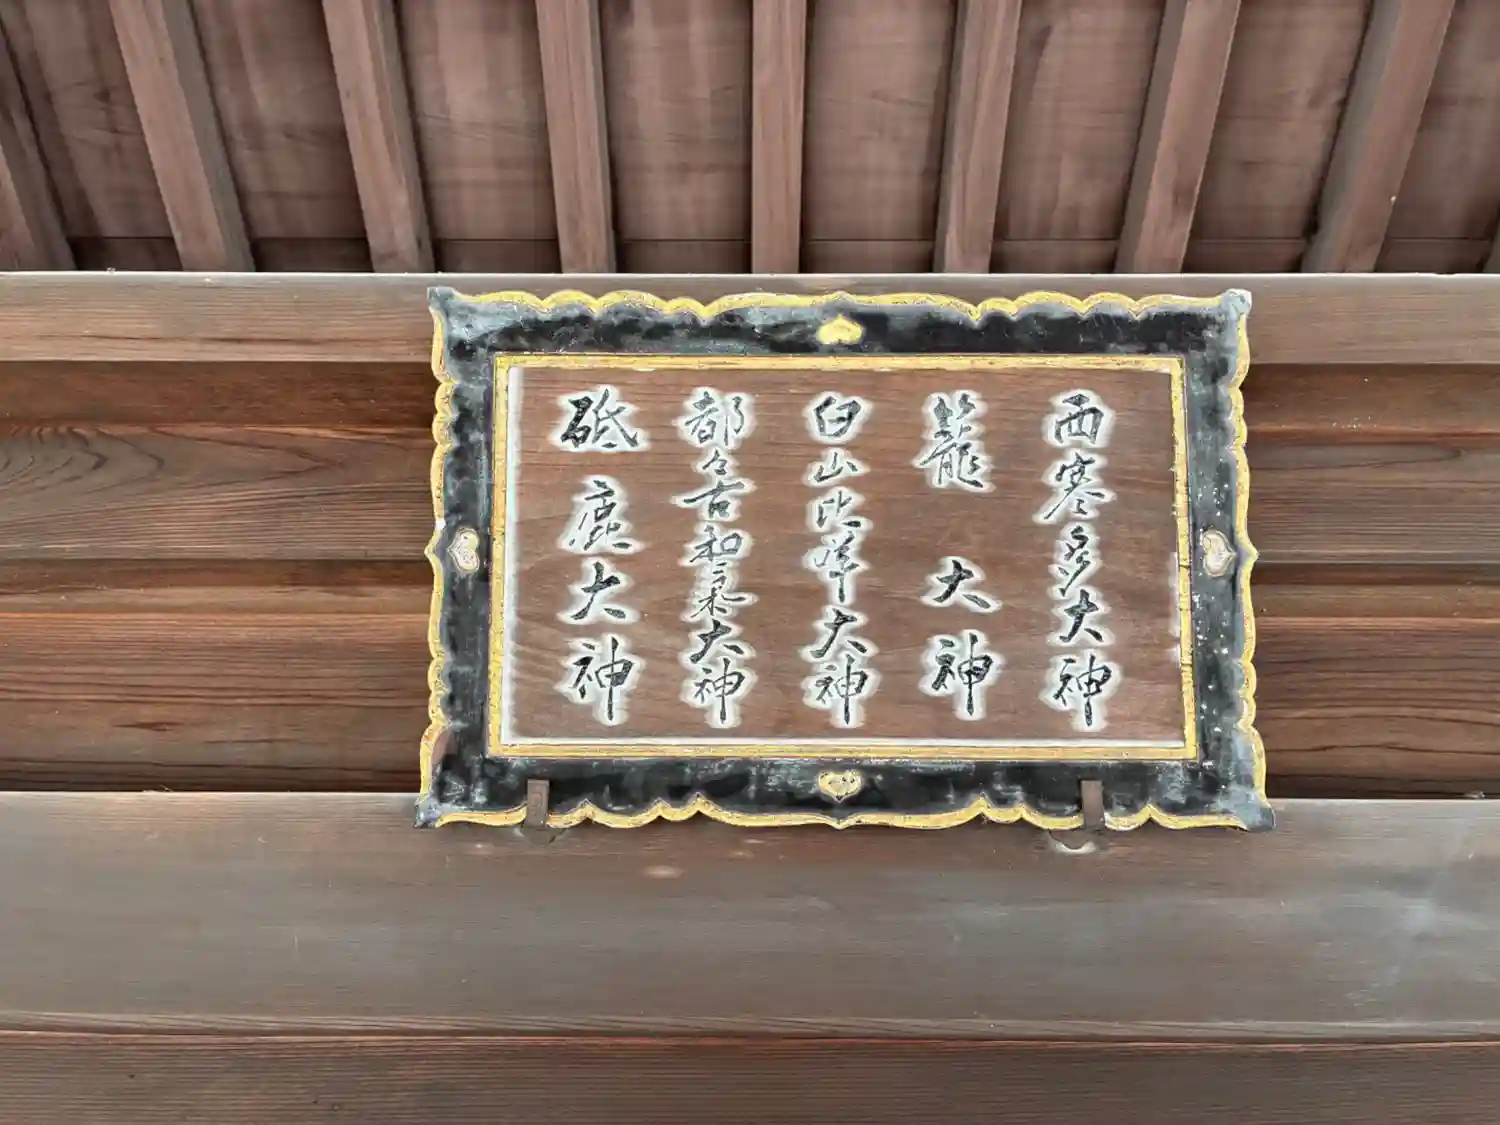 西寒多大神
籠大神
白山比咩大神
都々古和氣大神
砥鹿大神